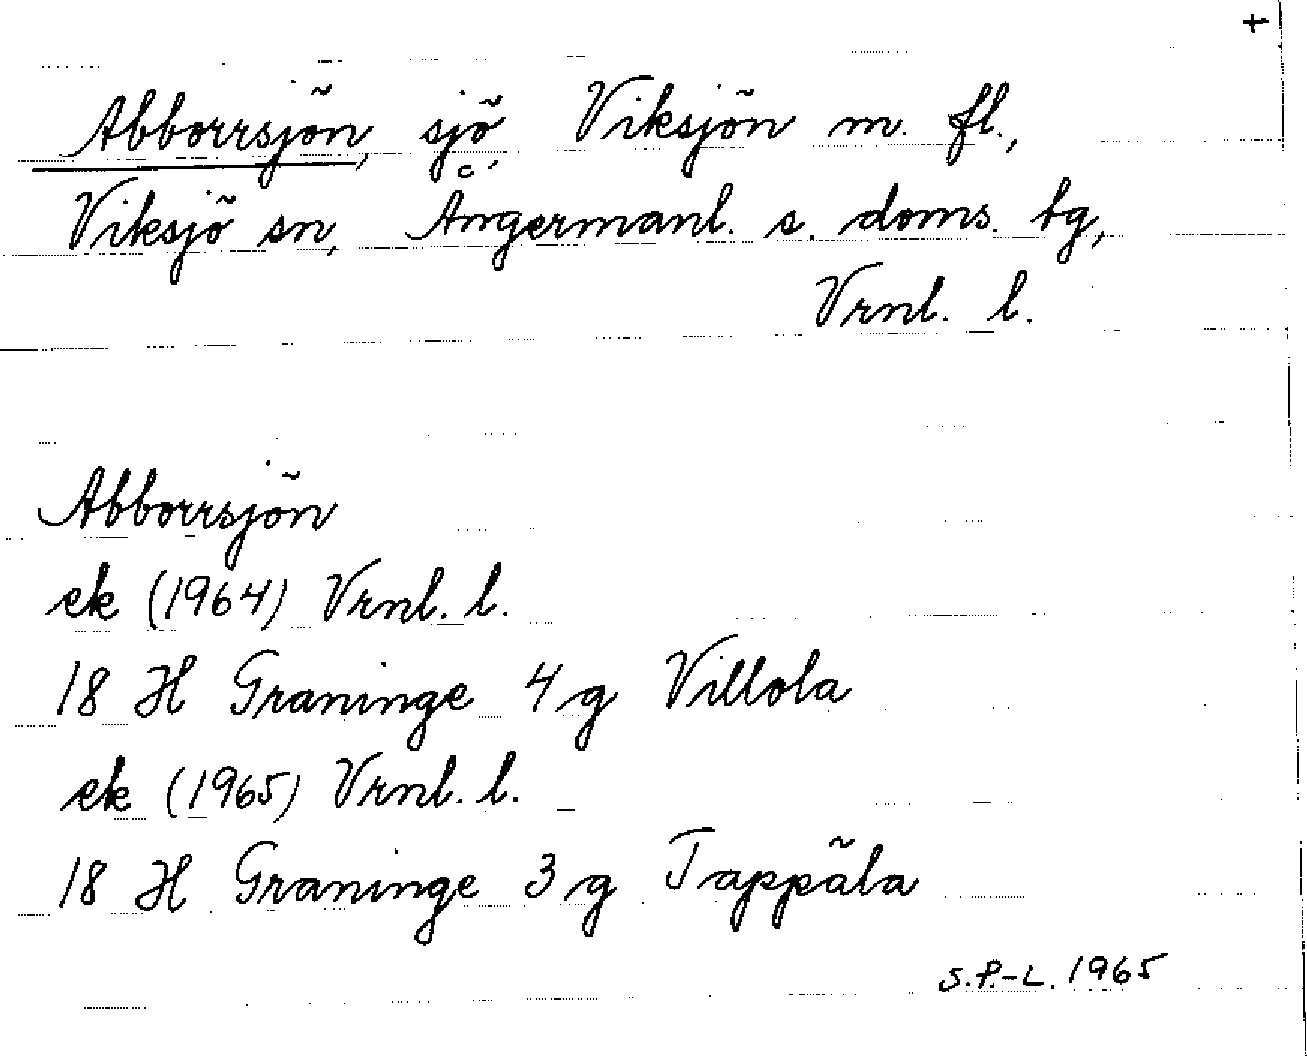 +
Abborrsjön, sjö, Viksjön m. fl.,
Viksjö sn, Ångermanl. s. doms. tg,
Vrnl. l.
Abborrsjön
ek (1964) Vrnl. l.
18 H Graninge 4 g Villola
ek (1965) Vrnl. l.
18 H Graninge 3 g Tappäla
S.P.-L. 1965